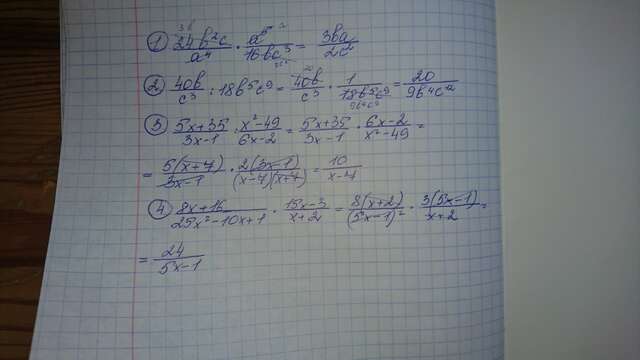 1) 24b²c/a⁴ · a⁵/16bc³ = 3ba/2c²
2) 40b/c³ : 18b⁵c⁹ = 40b/c³ · 1/18b⁵c⁹ = 20/9b⁴c¹²
3) 5x+35/3x-1 : x²-49/6x-2 = 5x+35/3x-1 · 6x-2/x²-49 =
= 5(x+7)/3x-1 · 2(3x-1)/(x-7)(x+7) = 10/x-7
4) 8x+16/25x²-10x+1 · 15x-3/x+2 = 8(x+2)/(5x-1)² · 3(5x-1)/x+2 =
= 24/5x-1